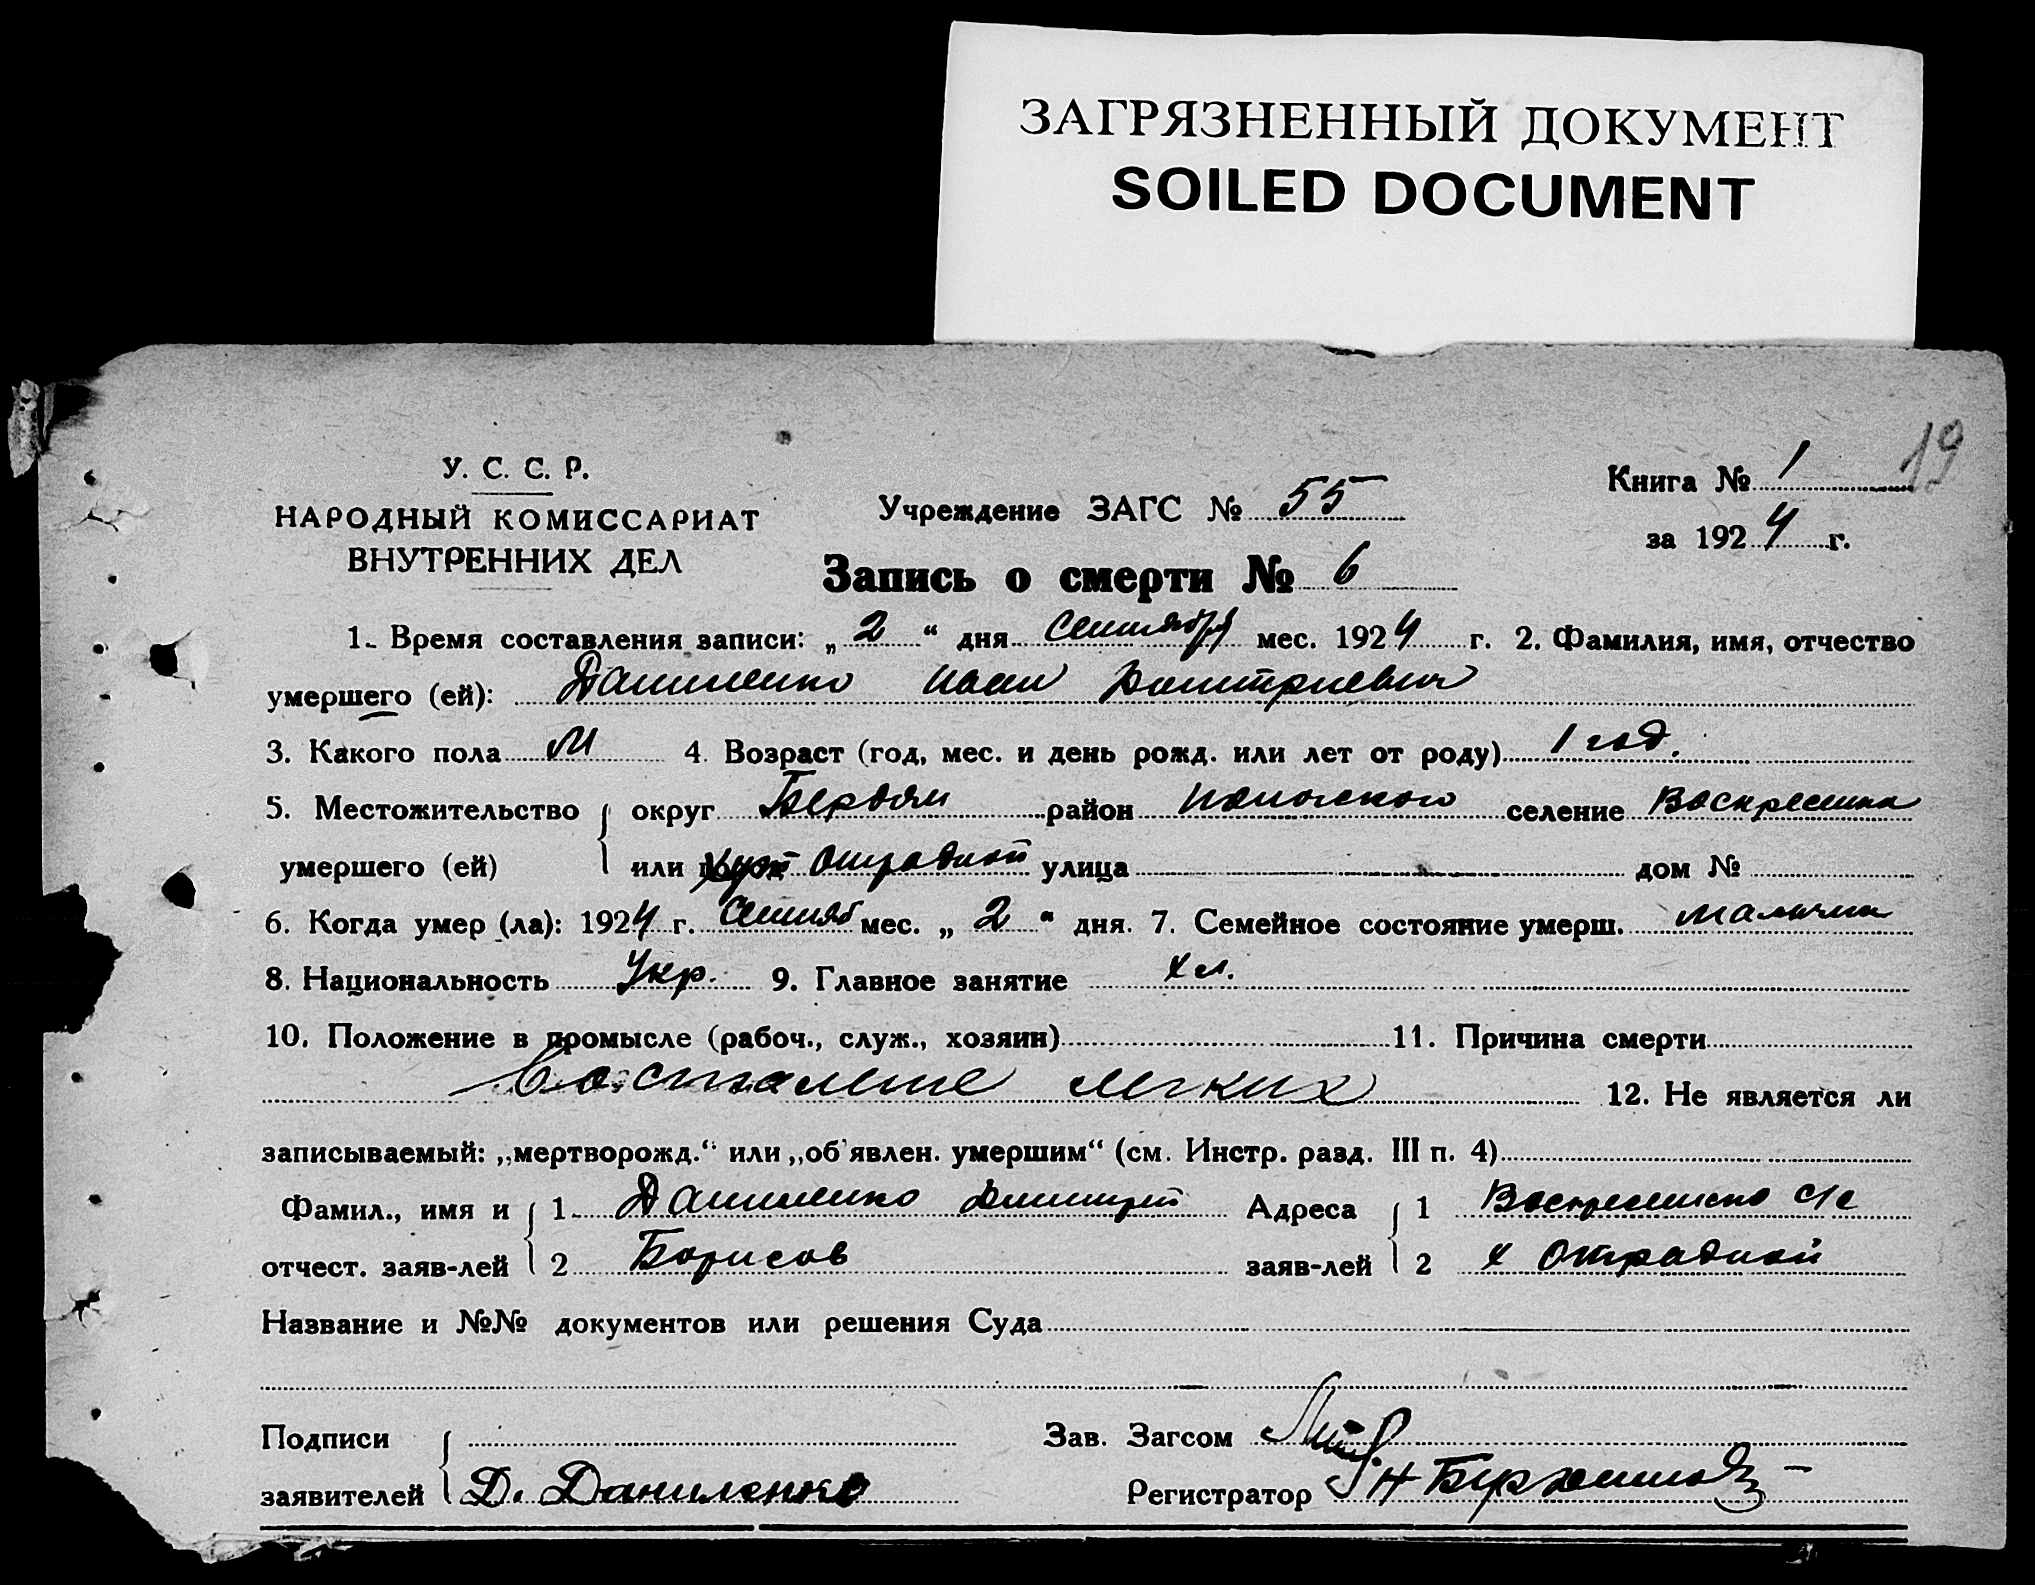 ЗАГРЯЗНЕННЫЙ ДОКУМЕНТ
SOILED DOCUMENT
19
У. С. С. Р.
НАРОДНЫЙ КОМИССАРИАТ
ВНУТРЕННИХ ДЕЛ
Учреждение ЗАГС № 55
Книга № 1
за 1924 г.
Запись о смерти № 6
1. Время составления записи: „2“ дня Сентября мес. 1924 г. 2. Фамилия, имя, отчество
умершего (ей): Даниленко Иван Дмитриевич
3. Какого пола М 4. Возраст (год, мес. и день рожд. или лет от роду) 1 год.
5. Местожительство округ Бердям район селение Воскресенка
умершего (ей) или хут Отрадной улица дом №
6. Когда умер (ла): 1924 г. Сентяб мес. „2“ дня. 7. Семейное состояние умерш. мальчик
8. Национальность Укр. 9. Главное занятие хл.
10. Положение в промысле (рабоч., служ., хозяин) 11. Причина смерти
Воспаление легких 12. Не является ли
записываемый: „мертворожд.“ или „об'явлен. умершим“ (см. Инстр. разд. III п. 4)
Фамил., имя и 1 Даниленко Дмитрий Адреса 1 Воскресенско с/с
отчест. заяв-лей 2 Борисов заяв-лей 2 х Отрадной
Название и №№ документов или решения Суда
Подписи Зав. Загсом
заявителей Д. Даниленко Регистратор